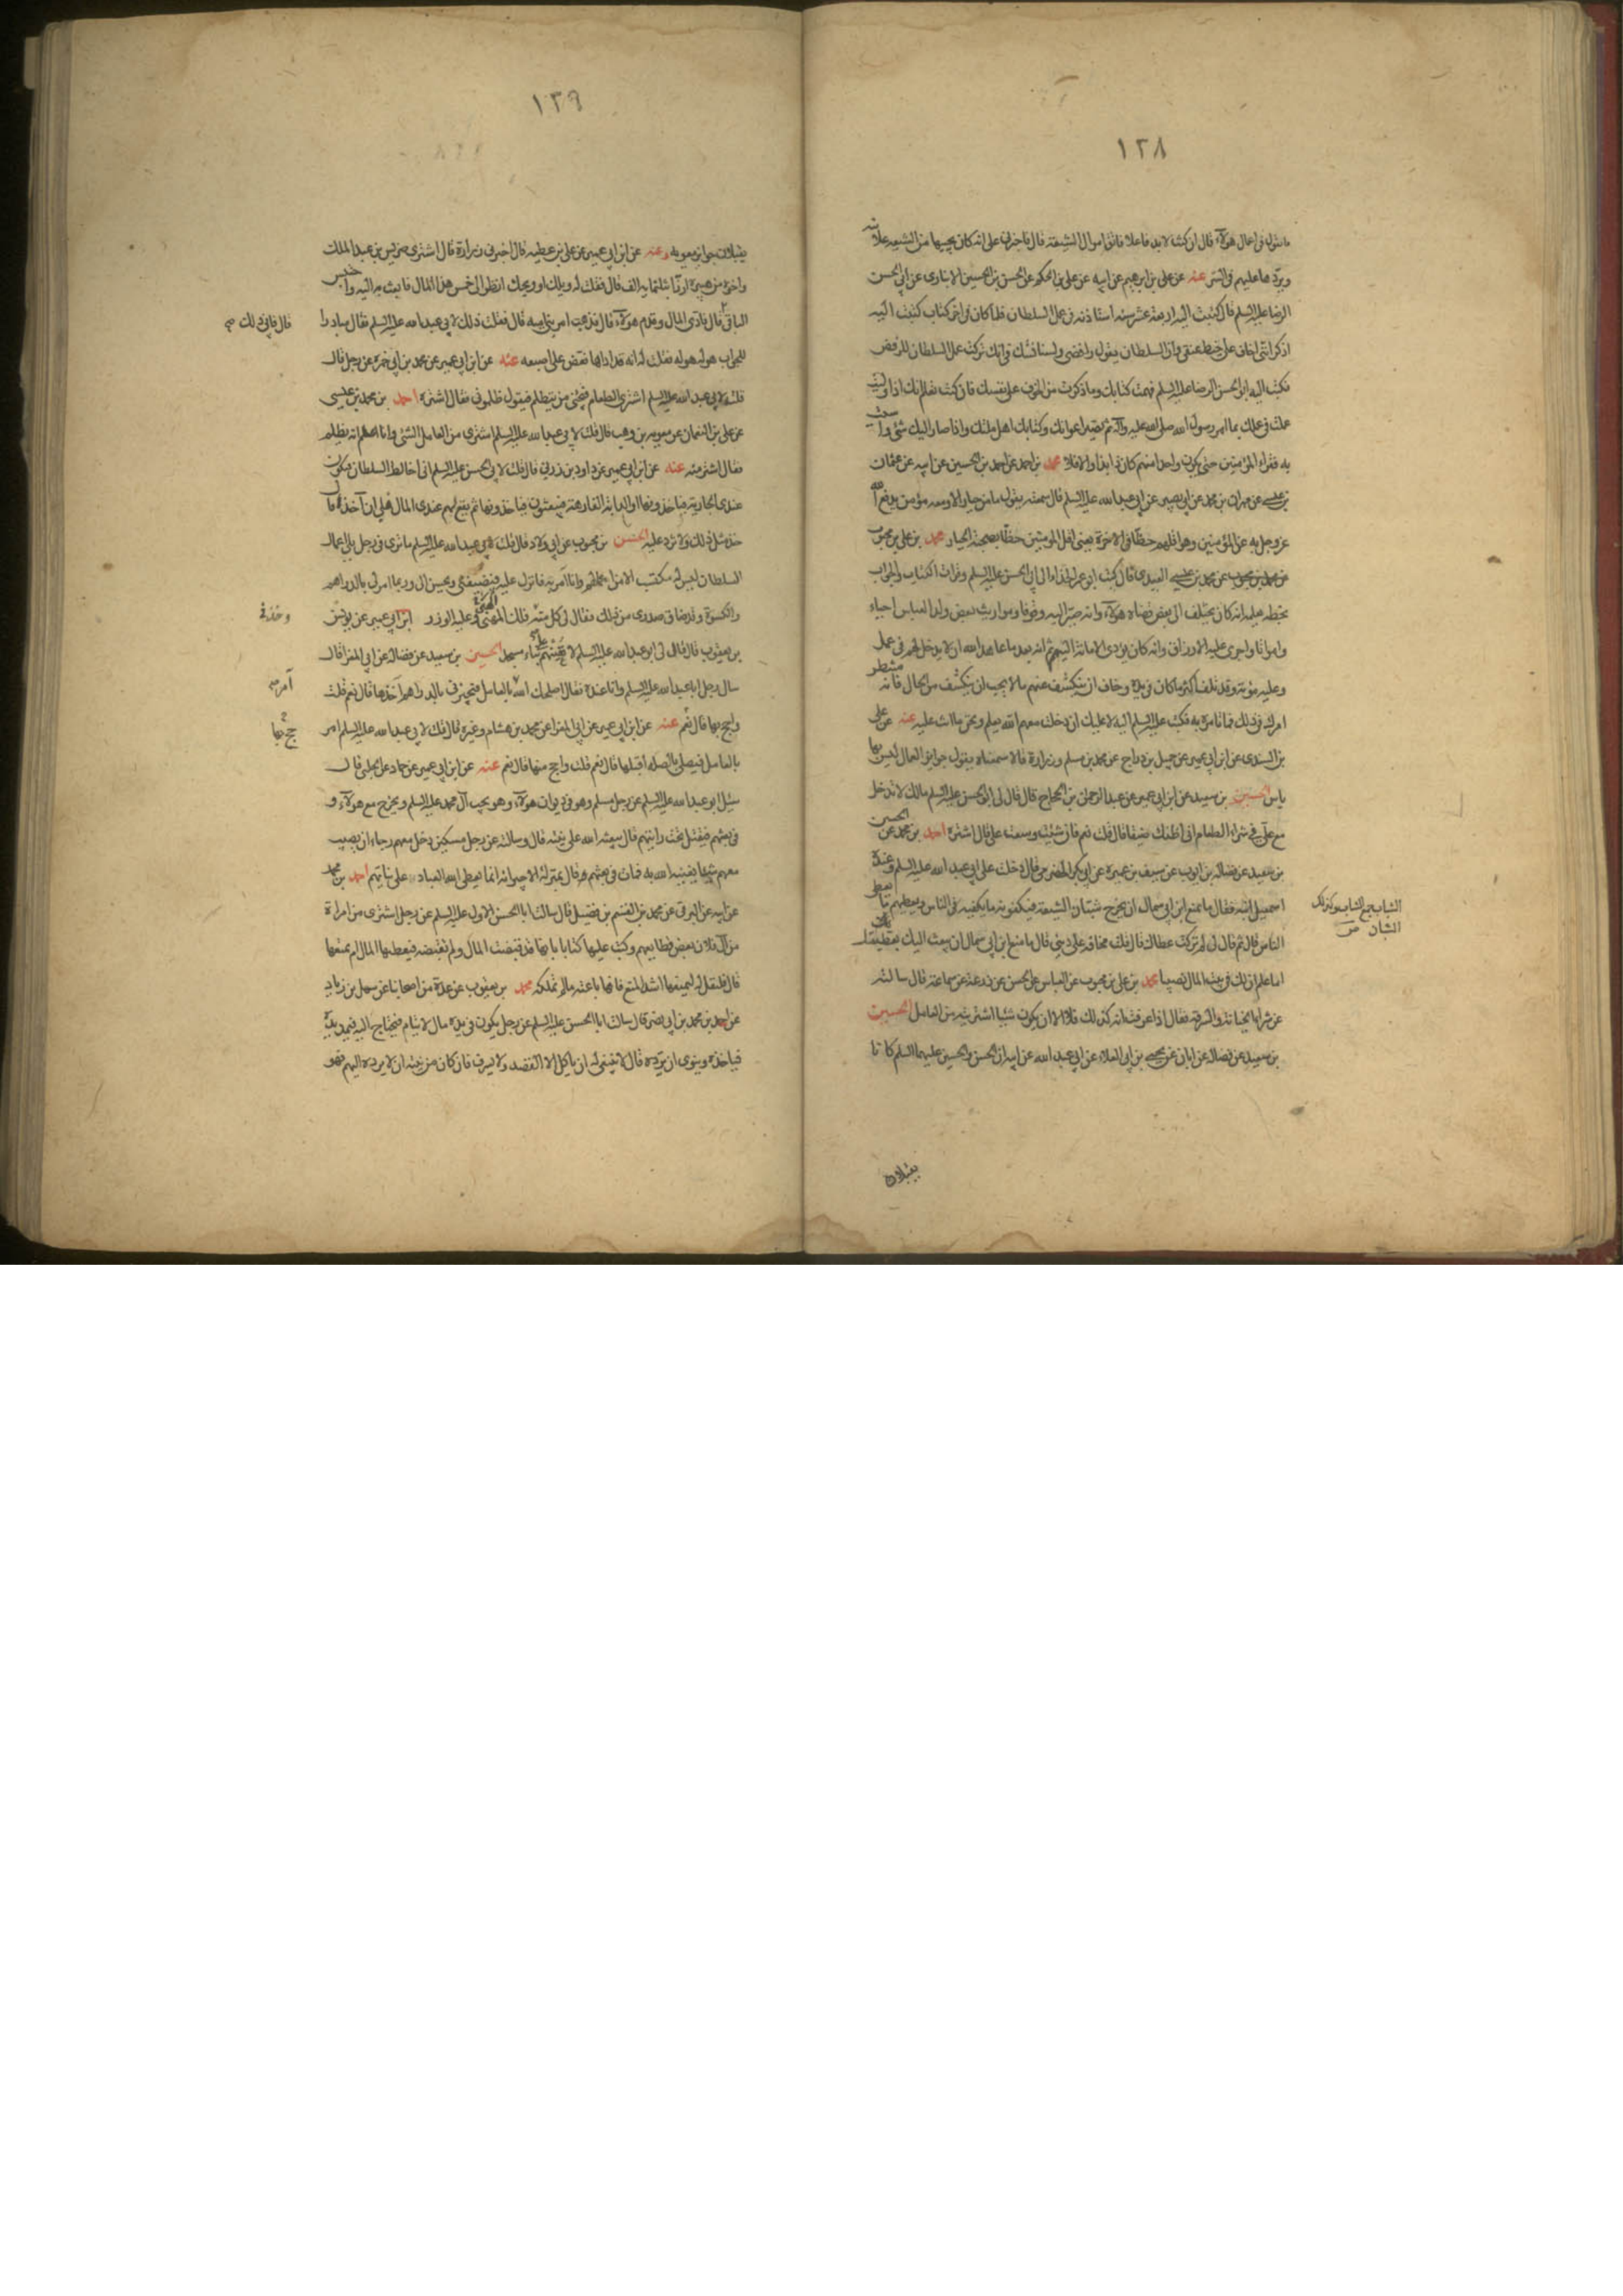 ١٢٨
ما تقول فى اعمال هؤلاء قال ان كنت لا بد فاعلا فاتق اموال الشيعة قال فاخبرنى على انه كان يجبيها من الشيعة علانية
ويردها عليهم فى السر عنه عن على بن ابرهيم عن ابيه عن على بن الحكم عن الحسن بن الحسين الانبارى عن ابى الحسن
الرضا عليه السلم قال كتبت اليه اربعة عشر سنة استاذنه فى عمل السلطان فلما كان فى اخر كتاب كتبت اليه
اذكر اننى اخاف على خيط عنقى وان السلطان يقول رافضى ولسنا نشك فى انك تركت عمل السلطان للرفض
فكتب اليه ابو الحسن الرضا عليه السلم فهمت كتابك وما ذكرت من الخوف على نفسك فان كنت تعلم انك اذا وليت
عملت فى عملك بما امر رسول الله صلى الله عليه وآله ثم تصير اعوانك وكتابك اهل ملتك واذا صار اليك شئ واسيت
به فقراء المؤمنين حتى يكون واحدا منهم كان ذا بذا والا فلا محمد بن احمد عن احمد بن الحسين عن ابيه عن عثمان
بن عيسى عن مهران بن محمد عن ابى بصير عن ابى عبد الله عليه السلم قال سمعته يقول ما من جبار الا ومعه مؤمن يدفع الله
عز وجل به عن المؤمنين وهو اقلهم حظا فى الاخرة يعنى اقل المؤمنين حظا بصحبة الجبار محمد بن على بن محبوب
عن محمد بن عيسى العبيدى قال كتب ابو عمر الحذاء الى ابى الحسن عليه السلم وقرات الكتاب والجواب
بخطه يعلمه انه كان يختلف الى بعض قضاة هؤلاء وانه صير اليه وقوفا ومواريث بعض ولد العباس احياء
وامواتا واجرى عليه الارزاق وانه كان يؤدى الامانة اليهم ثم انه بعد ما عاهد الله ان لا يدخل لهم فى عمل
وعليه مؤنة وقد تلف اكثر ما كان فى يده وخاف ان ينكشف عنهم ما لا يجب ان ينكشف من الحال فانه منتظر
امرك فى ذلك فما تامره به فكتب عليه السلم اليه لا عليك ان دخلت معهم الله يعلم ونحن ما انت عليه عنه عن على
بن السندى عن ابن ابى عمير عن جميل بن دراج عن محمد بن مسلم وزرارة قالا سمعناه يقول جوائز العمال ليس بها
باس الحسين بن سعيد عن ابن ابى عمير عن عبد الرحمن بن الحجاج قال قال لى ابو الحسن عليه السلم مالك لا تدخل
مع على فى شراء الطعام انى اظنك ضيقا قال قلت نعم فان شئت وسعت على قال اشتره احمد بن محمد عن الحسين
بن سعيد عن فضالة بن ايوب عن سيف بن عميرة عن ابى بكر الحضرمى قال دخلت على ابى عبد الله عليه السلم وعنده
اسمعيل ابنه فقال ما يمنع ابن ابى سمال ان يخرج شباب الشيعة فيكفونه ما يكفيه فى الناس ويعطيهم ما يعطى
الناس قال ثم قال لى لم تركت عطاك قال قلت مخافة على دينى قال ما منع ابن ابى سمال ان يبعث اليك بعطائك
اما علم ان لك فى بيت المال نصيبا محمد بن على بن محبوب عن العباس عن الحسن عن زرعة عن سماعة قال سالته
عن شراء الخيانة والسرقة فقال اذا عرفت انه كذلك فلا الا ان يكون شيئا اشتريته من العامل الحسين
بن سعيد عن فضالة عن ابان عن يحيى بن ابى العلاء عن ابى عبد الله عن ابيه ان الحسن والحسين عليهما السلم كانا
الشباب جمع الشاب وكذلك
الشبان ص
يقبلان
١٢٩
يقبلان جوائز معوية وعنه عن ابن ابى عمير عن على بن عطية قال اخبرنى زرارة قال اشترى ضريس بن عبد الملك
واخوه من هبيرة ارزا بثلثمائة الف قال فقلت له ويلك او ويحك انظر الى خمس هذا المال فابعث به اليه واحتبس
الباقى قال فادى المال وقدم هؤلاء فذهب امر بنى امية قال فقلت ذلك لابى عبد الله عليه السلم فقال مبادرا
قال فابى ذلك صح
للجواب هو له هو له فقلت له انه قد اداها فعض على اصبعه عنه عن ابن ابى عمير عن محمد بن ابى حمزة عن رجل قال
قلت لابى عبد الله عليه السلم اشترى الطعام فيجئنى من يتظلم فيقول ظلمونى فقال اشتره احمد بن محمد بن عيسى
عن على بن النعمان عن معوية بن وهب قال قلت لابى عبد الله عليه السلم اشترى من العامل الشئ وانا اعلم انه يظلم
فقال اشتر منه عنه عن ابن ابى عمير عن داود بن زربى قال قلت لابى الحسن عليه السلم انى اخالط السلطان فيكون
عندى الجارية فياخذونها او الدابة الفارهة فيبعثون فياخذونها ثم يقع لهم عندى المال فلى ان آخذه قال
خذ مثل ذلك ولا تزد عليه الحسن بن محبوب عن ابى ولاد قال قلت لابى عبد الله عليه السلم ما ترى فى رجل يلى اعمال
السلطان ليس له مكسب الا من اعمالهم وانا امر به فانزل عليه فيضيفنى ويحسن الى وربما امر لى بالدراهم
والكسوة وقد ضاق صدرى من ذلك فقال لى كل منه فلك المهنى وعليه الوزر ابن ابى عمير عن يونس
وخذ فى
بن يعقوب قال قال لى ابو عبد الله عليه السلم لا تعنهم على بناء مسجد الحسين بن سعيد عن فضالة عن ابى المغرا قال
سال رجل ابا عبد الله عليه السلم وانا عنده فقال اصلحك الله بالعامل فيجيزنى بالدراهم آخذها قال نعم قلت
أمر صح
واحج بها قال نعم عنه عن ابن ابى عمير عن ابى المغرا عن محمد بن هشام وغيره قال قلت لابى عبد الله عليه السلم امر
حج بها
بالعامل فيصلنى بالصلة اقبلها قال نعم قلت واحج منها قال نعم عنه عن ابن ابى عمير عن حماد عن الحلبى قال
سئل ابو عبد الله عليه السلم عن رجل مسلم وهو فى ديوان هؤلاء وهو يحب آل محمد عليه السلم ويخرج مع هؤلاء و
فى بعثهم فيقتل تحت رايتهم قال يبعثه الله على نيته قال وسالته عن رجل مسكين دخل معهم رجاء ان يصيب
معهم شيئا يغنيه الله به فمات فى بعثهم قال بمنزلة الاجير انه انما يعطى الله العباد على نياتهم احمد بن محمد
عن ابيه عن البرقى عن محمد بن القسم بن فضيل قال سالت ابا الحسن الاول عليه السلم عن رجل اشترى من امراة
من آل فلان بعض قطايعهم وكتب عليها كتابا بانها قد قبضت المال ولم تقبضه فيعطيها المال ام يمنعها
قال فليقل له ليمنعها اشد المنع فانها باعته ما لم تملكه محمد بن يعقوب عن عدة من اصحابنا عن سهل بن زياد
عن احمد بن محمد بن ابى نصر قال سالت ابا الحسن عليه السلم عن رجل يكون فى يده مال لايتام فيحتاج اليه فيمد يده
فياخذه وينوى ان يرده قال لا ينبغى له ان ياكل الا القصد ولا يسرف فان كان من نيته ان لا يرده اليهم فهو